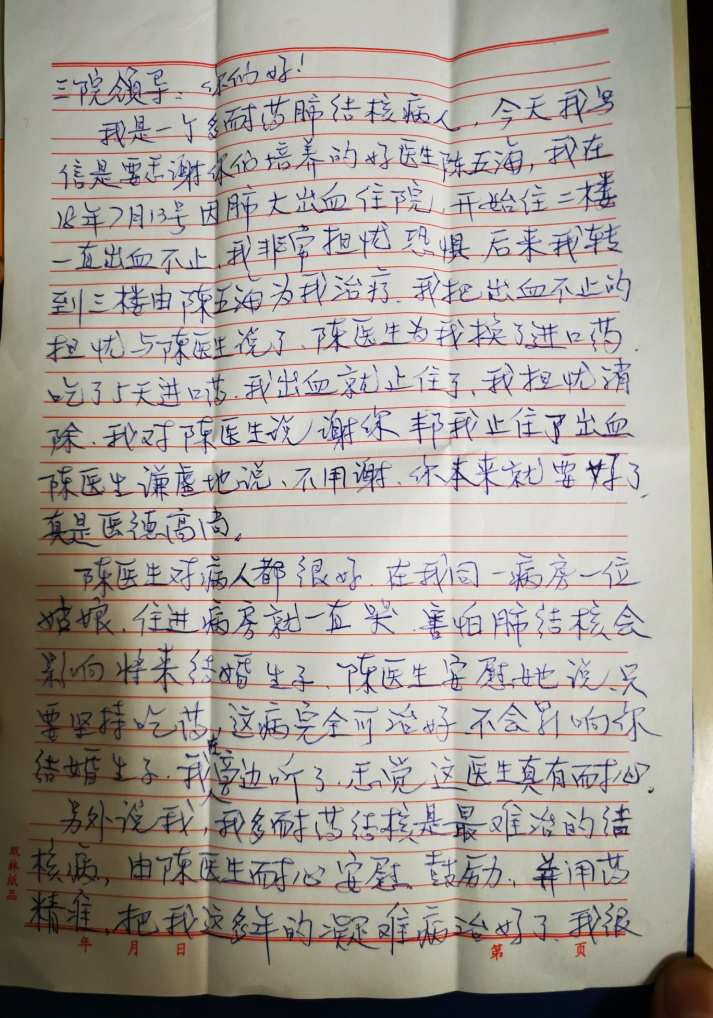 三院领导：你们好！
我是一个多耐药肺结核病人，今天我写
信是要感谢你们培养的好医生陈五海，我在
18年7月13号因肺大出血住院，开始住二楼
一直出血不止，我非常担忧恐惧 后来我转
到三楼由陈五海为我治疗．我把出血不止的
担忧与陈医生说了、陈医生为我换了进口药．
吃了5天进口药．我出血就止住了、我担忧消
除．我对陈医生说 谢你 邦我止住了出血
陈医生谦虚地说、不用谢．你本来就要好了
真是医德高尚。
陈医生对病人都很好．在我同一病房一位
姑娘、住进病房就一直哭．害怕肺结核会
影响将来结婚生子．陈医生安慰她说、只
要坚持吃药，这病完全可治好 不会影响你
结婚生子．我在旁边听了．觉这医生真有耐心。
另外说我人，我多耐药结核是最难治的结
核病，由陈医生耐心安慰、鼓励、并用药
精准，把我这多年的凝难病治好了．我很
双林纸品
年 月 日 第 页